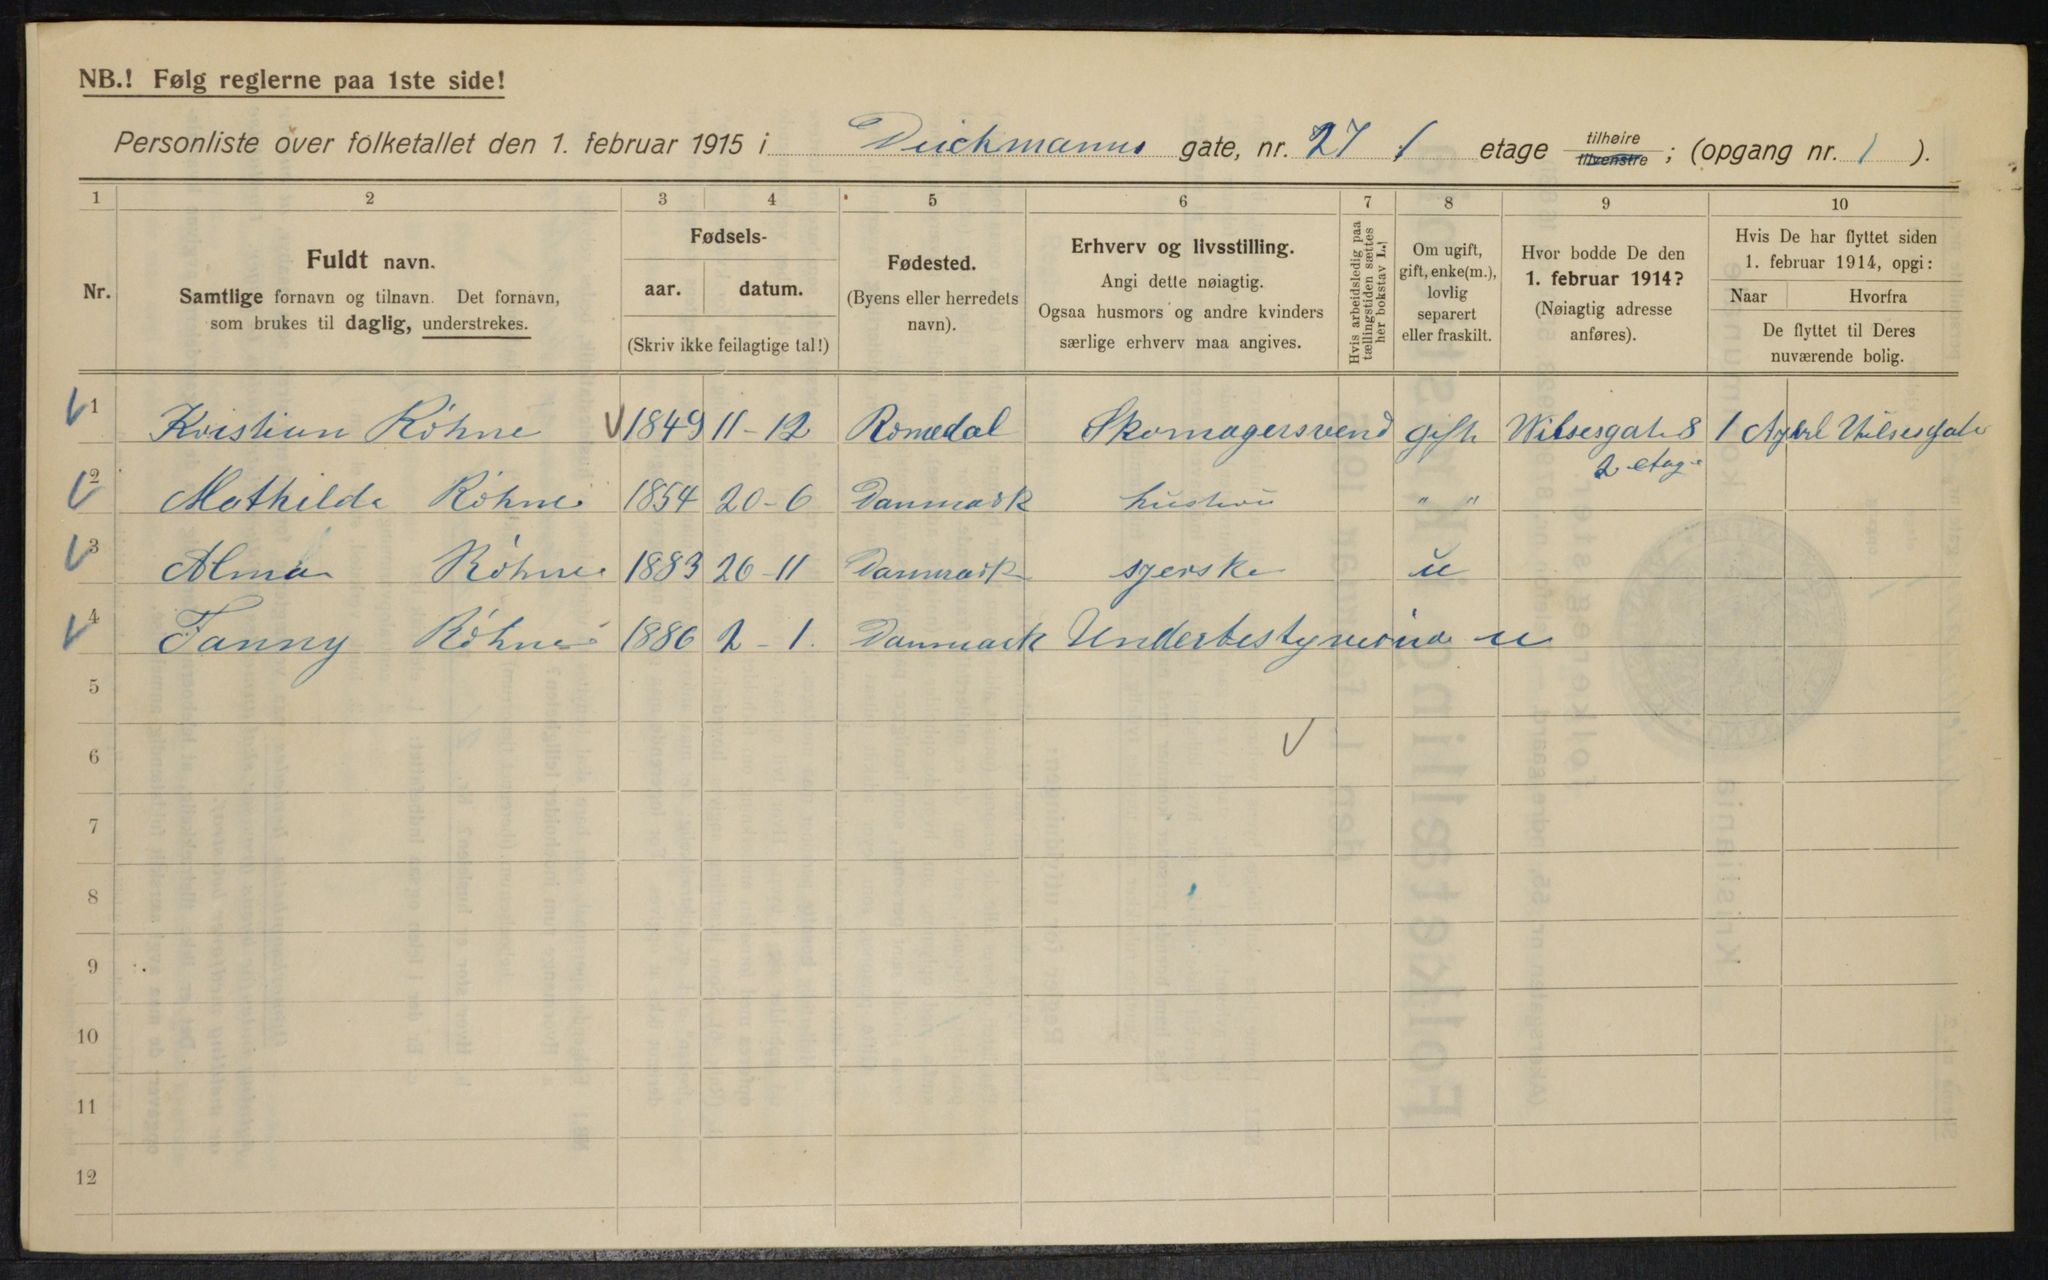 NB.! Følg reglerne paa 1ste side!
Personliste over folketallet den 1. februar 1915 i Deichmanns gate, nr. 27 1 etage tilhøire tilvenstre; (opgang nr. 1 ).
1 2 3 4 5 6 7 8 9 10
Nr.
Fuldt navn.
Samtlige fornavn og tilnavn. Det fornavn,
som brukes til daglig, understrekes.
Fødsels-
aar. datum.
(Skriv ikke feilagtige tal!)
Fødested.
(Byens eller herredets
navn).
Erhverv og livsstilling.
Angi dette nøiagtig.
Ogsaa husmors og andre kvinders
særlige erhverv maa angives.
Hvis arbeidsledig paa
tællingstiden sættes
her bokstav L.!
Om ugift,
gift, enke(m.),
lovlig
separert
eller fraskilt.
Hvor bodde De den
1. februar 1914?
(Nøiagtig adresse
anføres).
Hvis De har flyttet siden
1. februar 1914, opgi:
Naar Hvorfra
De flyttet til Deres
nuværende bolig.
1 Kristian Röhne 1849 11-12 Romedal Skomagersvend gift Wilsesgate 8 1 April Wilsesgate
2 etage
2 Mathilde Röhne 1854 20-6 Danmark hustru " "
3 Alma Röhne 1883 26-11 Danmark syerske u
4 Fanny Röhne 1886 2-1. Danmark Underbestyrerinde u
5
6
7
8
9
10
11
12